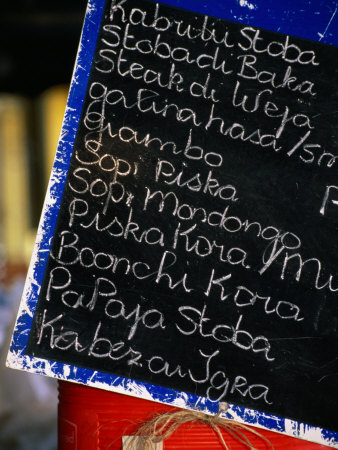 Kabutu Stoba
Stoba di Baka
Steak di Weja
gatina hasa / sm
giambo
Sopi Piska
Sopi Mondongo
Piska Kora / Mu
Boonchi Kora
PaPaja Stoba
Kabez au Igra